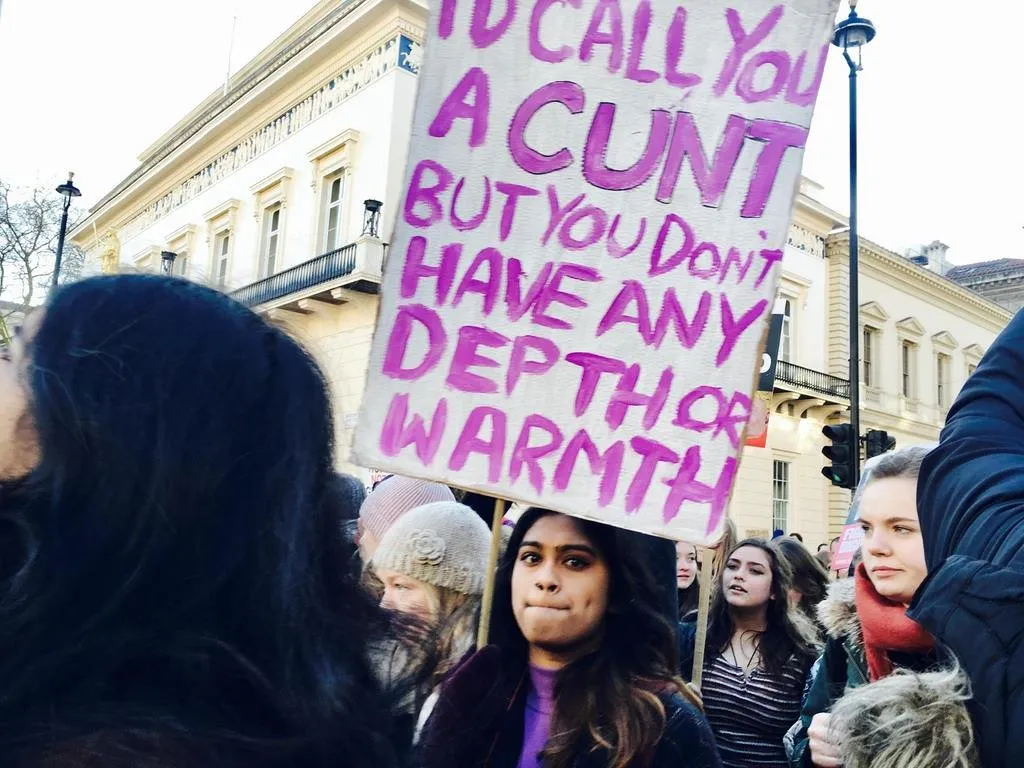 I'D CALL YOU
A CUNT
BUT YOU DON'T
HAVE ANY
DEPTH OR
WARMTH